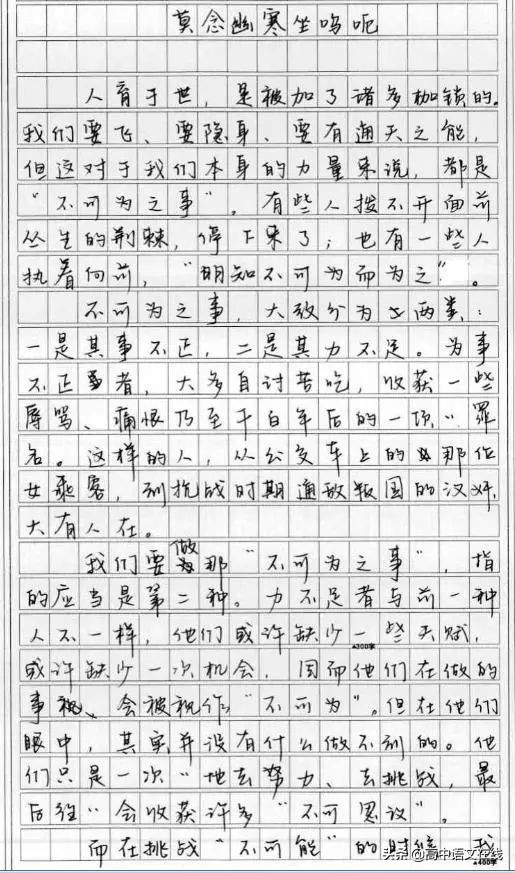 莫念幽寒坐呜呃
人育于世，是被加了诸多枷锁的。
我们要飞、要隐身、要有通天之能，
但这对于我们本身的力量来说，都是
“不可为之事”。有些人拨不开面前
丛生的荆棘，停下来了；也有一些人
执着向前，“明知不可为而为之”。
不可为之事，大致分为两类：
一是其事不正，二是其力不足。为事
不正者，大多自讨苦吃，收获一些
辱骂、痛恨乃至千百年后的一项“罪
名。这样的人，从公交车上的那位
女乘客，到抗战时期通敌叛国的汉奸，
大有人在。
我们要做那“不可为之事”，指
的应当是第二种。力不足者与前一种
人不一样，他们或许缺少一些天赋，
▲300字
或许缺少一次机会，因而他们在做的
事、会被视作“不可为”。但在他们
眼中，其实并没有什么做不到的。他
们只是一次〃地去努力、去挑战，最
后往〃会收获许多“不可思议”。
而在挑战“不可能”的时候，我
头条 @高中语文在线
▲400字